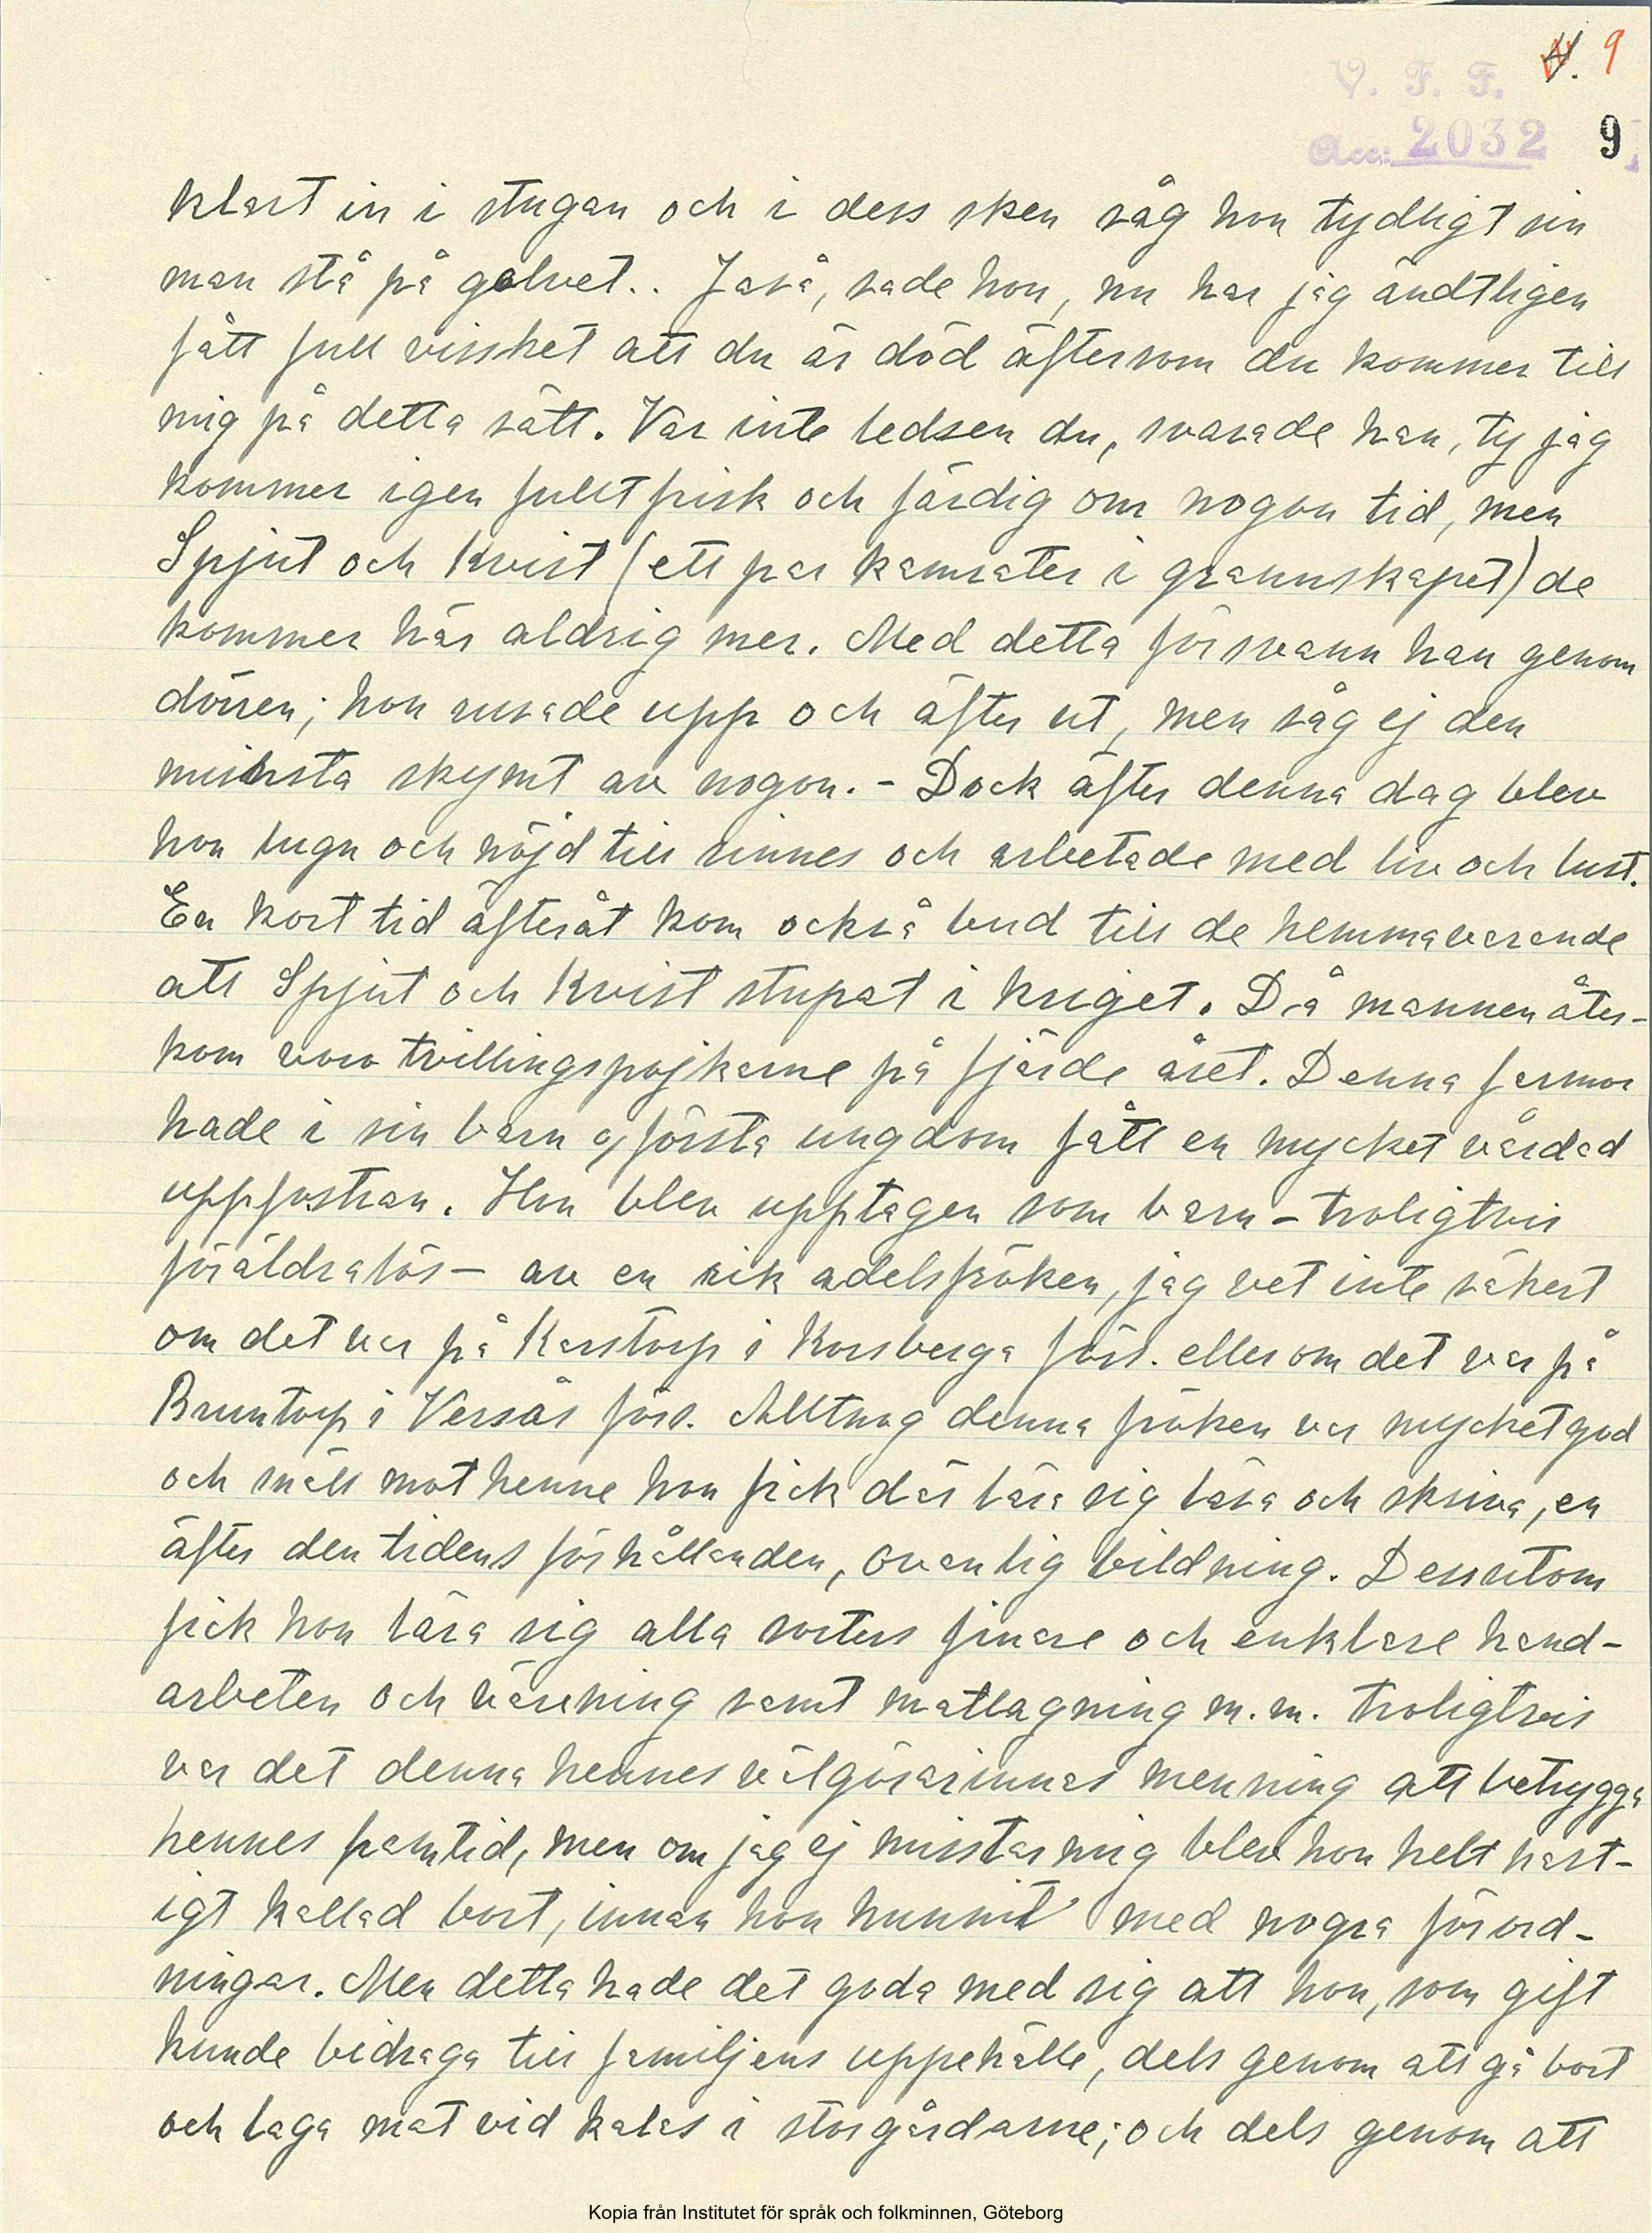 9
V. F. F.
Acc: 2032 9
klart in i stugan och i dess sken såg hon tydligt sin
man stå på golvet.. Jaså, sade hon, nu har jag ändtligen
fått full visshet att du är död äftersom du kommer till
mig på detta sätt. Var inte ledsen du, svarade han, ty jag
kommer igen fullt frisk och färdig om nogon tid, men
Spjut och Kvist (ett par kamrater i grannskapet) de
kommer här aldrig mer. Med detta försvann han genom
dörren; hon rusade upp och äfter ut, men såg ej den
minsta skymt av nogon. - Dock äfter denna dag blev
hon lugn och nöjd till sinnes och arbetade med liv och lust.
En kort tid äfteråt kom också bud till de hemmavarande
att Spjut och Kvist stupat i kriget. Då mannen åter-
kom voro tvillingspojkarne på fjärde året. Denna farmor
hade i sin barn o, första ungdom fått en mycket vårdad
uppfostran. Hon blev upptagen som barn - troligtvis
föräldralös - av en rik adelsfröken, jag vet inte säkert
om det var på Karstorp i Korsberga förs. eller om det var på
Bruntorp i Versås förs. Alltnog denna fröken var mycket god
och snäll mot henne hon fick där lära sig läsa och skriva, en
äfter den tidens förhållanden, ovanlig bildning. Dessutom
fick hon lära sig alla sorters finare och enklare hand-
arbeten och vävning samt matlagning m.m. troligtvis
var det denna hennes välgörarinnas menning att betrygga
hennes framtid, men om jag ej misstar mig blev hon helt hast-
igt kallad bort, innan hon hunnit med nogra förord-
ningar. Men detta hade det goda med sig att hon, som gift
kunde bidraga till familjens uppehälle, dels genom att gå bort
och laga mat vid kalas i storgårdarne; och dels genom att
Kopia från Institutet för språk och folkminnen, Göteborg